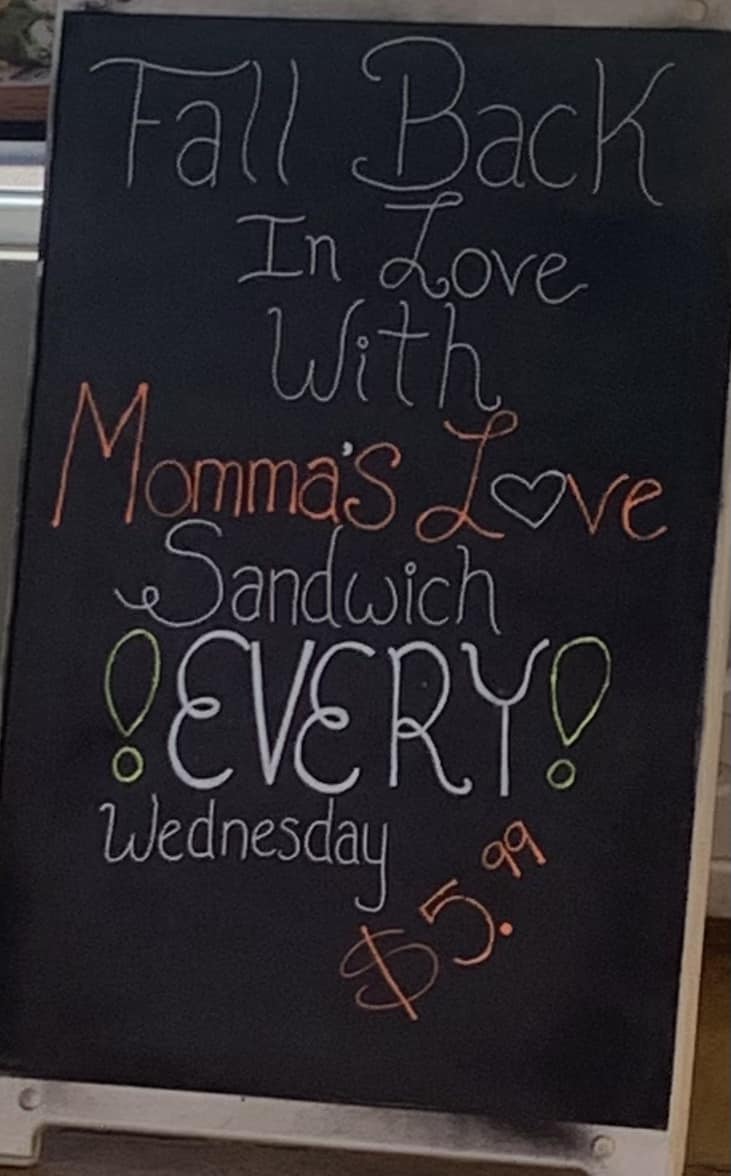 Fall Back
In Love
With
Momma's L♡ve
Sandwich
!EVERY!
Wednesday
$5.99